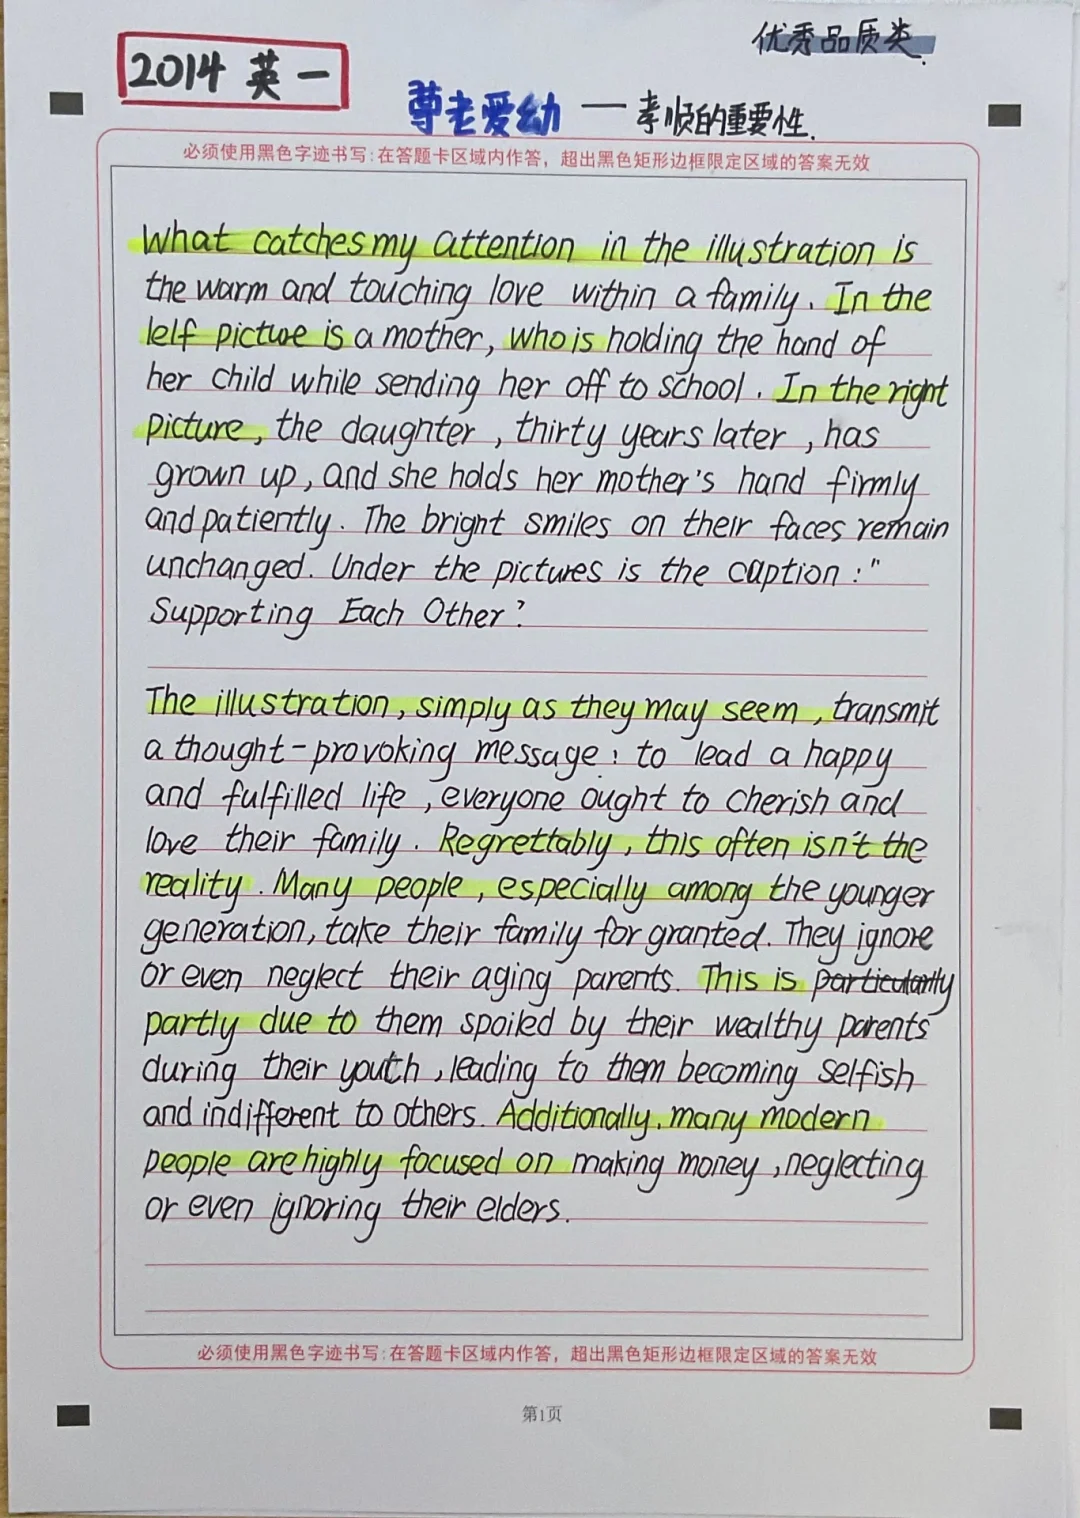 优秀品质类.
2014 英一
尊老爱幼 — 孝顺的重要性.
必须使用黑色字迹书写:在答题卡区域内作答，超出黑色矩形边框限定区域的答案无效
What catches my attention in the illustration is
the warm and touching love within a family. In the
lelf picture is a mother, who is holding the hand of
her child while sending her off to school. In the right
picture, the daughter, thirty years later, has
grown up, and she holds her mother's hand firmly
and patiently. The bright smiles on their faces remain
unchanged. Under the pictures is the caption: "
Supporting Each Other?
The illustration, simply as they may seem, transmit
a thought-provoking message: to lead a happy
and fulfilled life, everyone ought to cherish and
love their family. Regrettably, this often isn't the
reality. Many people, especially among the younger
generation, take their family for granted. They ignore
or even neglect their aging parents. This is particularly
partly due to them spoiled by their wealthy parents
during their youth, leading to them becoming selfish
and indifferent to others. Additionally, many modern
people are highly focused on making money, neglecting
or even ignoring their elders.
必须使用黑色字迹书写:在答题卡区域内作答，超出黑色矩形边框限定区域的答案无效
第1页